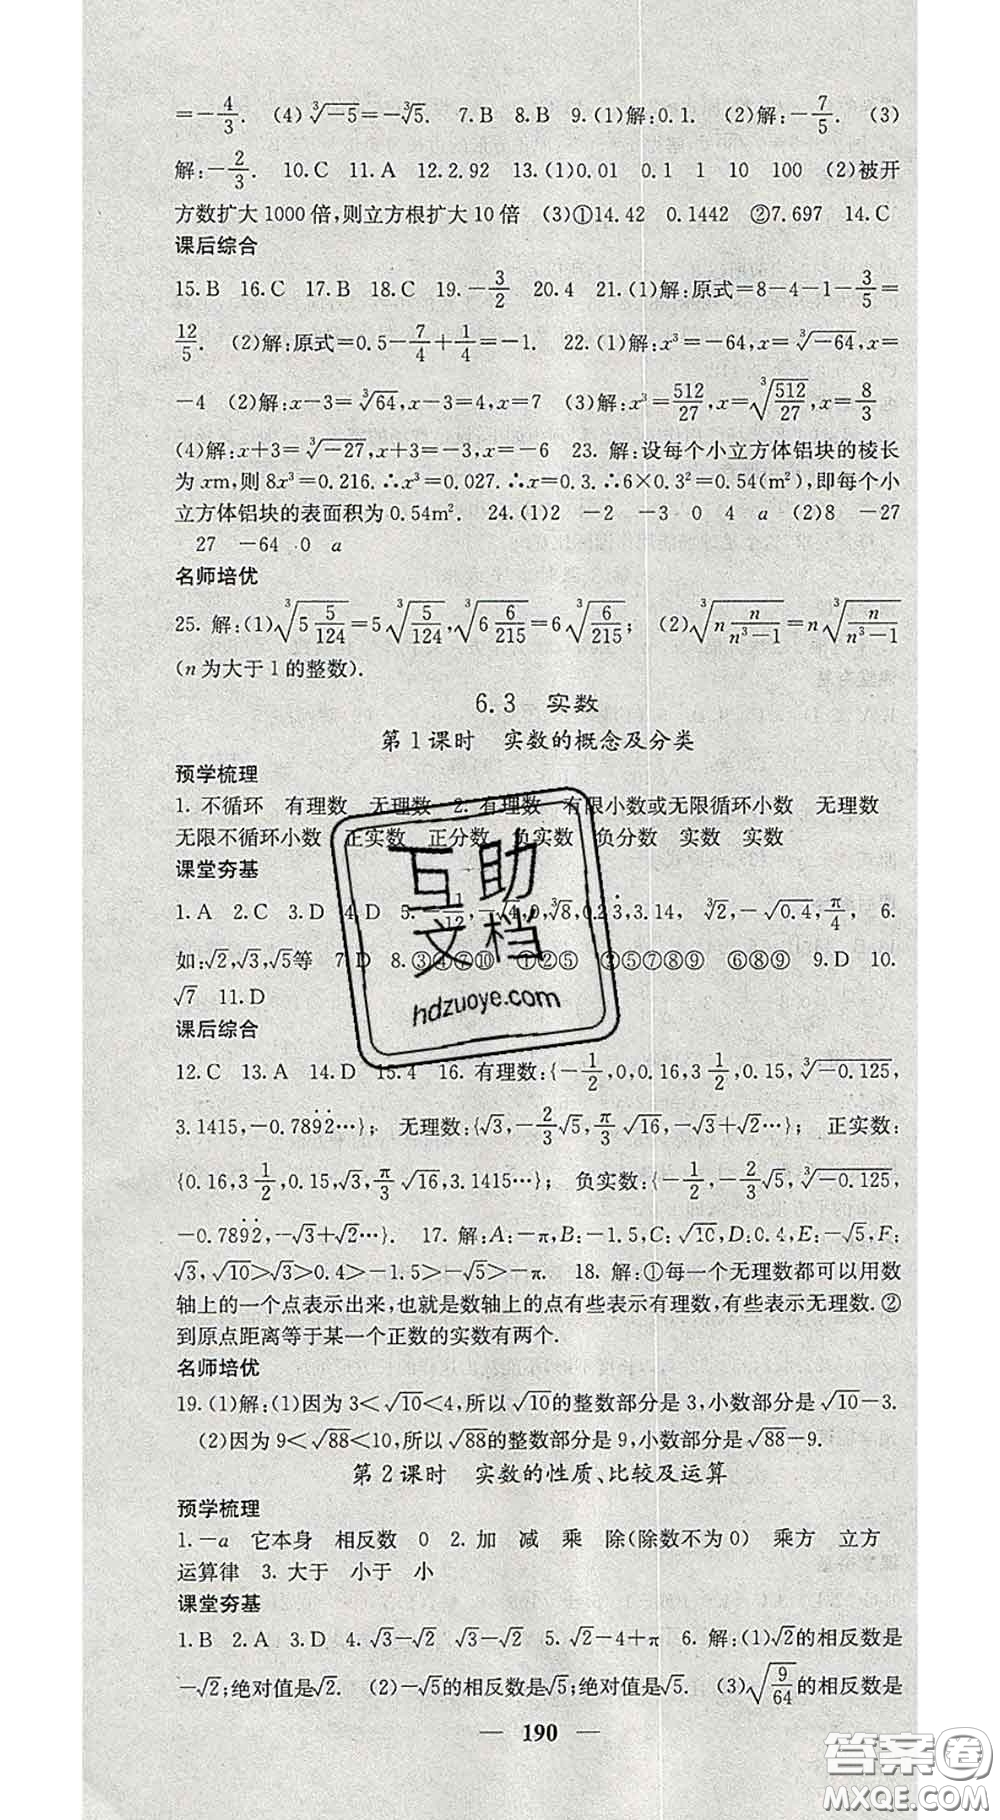 =-4/3. (4)∛-5=-∛5. 7.B 8.B 9.(1)解:0.1. (2)解:-7/5. (3)
解:-2/3. 10.C 11.A 12.2.92 13.(1)0.01 0.1 1 10 100 (2)被开
方数扩大1000倍,则立方根扩大10倍 (3)①14.42 0.1442 ②7.697 14.C
课后综合
15.B 16.C 17.B 18.C 19.-3/2 20.4 21.(1)解:原式=8-4-1-3/5=
12/5. (2)解:原式=0.5-7/4+1/4=-1. 22.(1)解:x³=-64,x=∛-64,x=
-4 (2)解:x-3=∛64,x-3=4,x=7 (3)解:x³=512/27,x=∛(512/27),x=8/3
(4)解:x+3=∛-27,x+3=-3,x=-6 23. 解:设每个小立方体铝块的棱长
为xm,则8x³=0.216.∴x³=0.027.∴x=0.3.∴6×0.3²=0.54(m²),即每个小
立方体铝块的表面积为0.54m². 24.(1)2 -2 -3 0 4 a (2)8 -27
27 -64 0 a
名师培优
25. 解:(1)∛(5 5/124)=5∛(5/124),∛(6 6/215)=6∛(6/215); (2)∛(n n/(n³-1))=n∛(n/(n³-1))
(n为大于1的整数).
6.3 实数
第1课时 实数的概念及分类
预学梳理
1. 不循环 有理数 无理数 2. 有理数 有限小数或无限循环小数 无理数
无限不循环小数 正实数 正分数 负实数 负分数 实数 实数
课堂夯基
1.A 2.C 3.D 4.D 5.-1/12,-√4,0,∛8,0.23̇,3.14, ∛2,-√0.4,π/4, 6.
如:√2,√3,√5等 7.D 8.③④⑦⑩ ①②⑤ ①②⑤⑥⑧⑨ ⑥⑧⑨ 9.D 10.
√7 11.D
课后综合
12.C 13.A 14.D 15.4 16. 有理数:{-1/2,0,0.16,3 1/2,0.15,∛-0.125,
3.1415,-0.789̇2̇…}; 无理数:{√3,-2/3√5,π/3 √16,-√3+√2…}; 正实数:
{0.16,3 1/2,0.15,√3,π/3 √16,3.1415…}; 负实数:{-1/2,-2/3√5,∛-0.125,
-0.789̇2̇,-√3+√2…}. 17. 解:A:-π,B:-1.5,C:√10,D:0.4,E:-√5,F:
√3,√10>√3>0.4>-1.5>-√5>-π. 18. 解:①每一个无理数都可以用数
轴上的一个点表示出来,也就是数轴上的点有些表示有理数,有些表示无理数.②
到原点距离等于某一个正数的实数有两个.
名师培优
19.(1)解:(1)因为3<√10<4,所以√10的整数部分是3,小数部分是√10-3.
(2)因为9<√88<10,所以√88的整数部分是9,小数部分是√88-9.
第2课时 实数的性质、比较及运算
预学梳理
1.-a 它本身 相反数 0 2. 加 减 乘 除(除数不为0) 乘方 立方
运算律 3. 大于 小于 小
课堂夯基
1.B 2.A 3.D 4.√3-√2 √3-√2 5.√2-4+π 6. 解:(1)√2的相反数是
-√2;绝对值是√2. (2)-√5的相反数是√5;绝对值是√5. (3)√(9/64)的相反数是
— 190 —
互助
文档
hdzuoye.com
答案圈
MXQE.COM